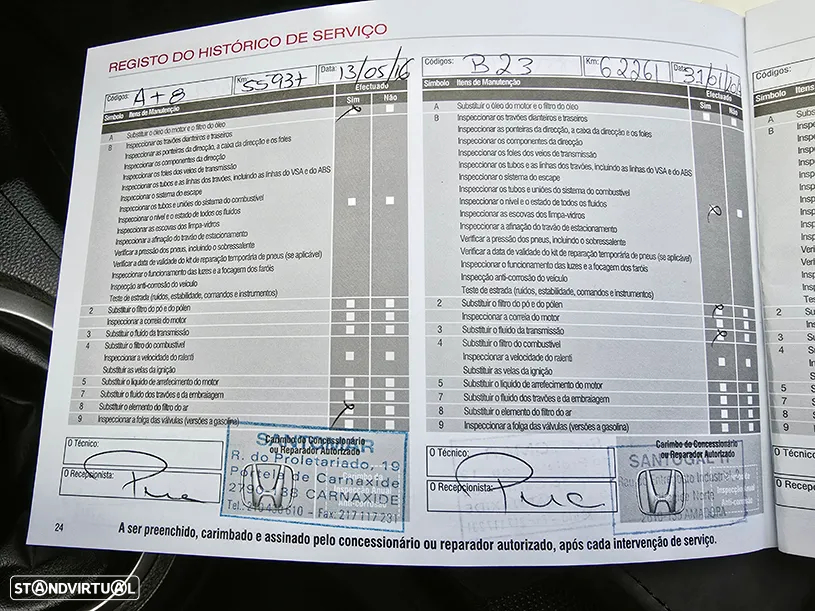 REGISTO DO HISTÓRICO DE SERVIÇO
Códigos: A+8 Km: 55937 Data: 13/05/16
Símbolo Itens de Manutenção Efectuado
Sim Não
A Substituir o óleo do motor e o filtro do óleo
B Inspeccionar os travões dianteiros e traseiros
Inspeccionar as ponteiras da direcção, a caixa da direcção e os foles
Inspeccionar os componentes da direcção
Inspeccionar os foles dos veios de transmissão
Inspeccionar os tubos e as linhas dos travões, incluindo as linhas do VSA e do ABS
Inspeccionar o sistema do escape
Inspeccionar os tubos e uniões do sistema do combustível
Inspeccionar o nível e o estado de todos os fluidos
Inspeccionar as escovas dos limpa-vidros
Inspeccionar a afinação do travão de estacionamento
Verificar a pressão dos pneus, incluindo o sobressalente
Verificar a data de validade do kit de reparação temporária de pneus (se aplicável)
Inspeccionar o funcionamento das luzes e a focagem dos faróis
Inspecção anti-corrosão do veículo
Teste de estrada (ruídos, estabilidade, comandos e instrumentos)
2 Substituir o filtro do pó e do pólen
Inspeccionar a correia do motor
3 Substituir o fluido da transmissão
4 Substituir o filtro do combustível
Inspeccionar a velocidade do ralenti
Substituir as velas da ignição
5 Substituir o líquido de arrefecimento do motor
7 Substituir o fluido dos travões e da embraiagem
8 Substituir o elemento do filtro do ar
9 Inspeccionar a folga das válvulas (versões a gasolina)
O Técnico:
O Recepcionista:
Carimbo do Concessionário
ou Reparador Autorizado
SANTOMAR
R. do Proletariado, 19
Portela de Carnaxide
CARNAXIDE
Fax: 217 117 231
Inspecção Anual
Anti-corrosão
Códigos: B 23 Km: 62261 Data: 31/01/
Símbolo Itens de Manutenção Efectuado
Sim Não
A Substituir o óleo do motor e o filtro do óleo
B Inspeccionar os travões dianteiros e traseiros
Inspeccionar as ponteiras da direcção, a caixa da direcção e os foles
Inspeccionar os componentes da direcção
Inspeccionar os foles dos veios de transmissão
Inspeccionar os tubos e as linhas dos travões, incluindo as linhas do VSA e do ABS
Inspeccionar o sistema do escape
Inspeccionar os tubos e uniões do sistema do combustível
Inspeccionar o nível e o estado de todos os fluidos
Inspeccionar as escovas dos limpa-vidros
Inspeccionar a afinação do travão de estacionamento
Verificar a pressão dos pneus, incluindo o sobressalente
Verificar a data de validade do kit de reparação temporária de pneus (se aplicável)
Inspeccionar o funcionamento das luzes e a focagem dos faróis
Inspecção anti-corrosão do veículo
Teste de estrada (ruídos, estabilidade, comandos e instrumentos)
2 Substituir o filtro do pó e do pólen
Inspeccionar a correia do motor
3 Substituir o fluido da transmissão
4 Substituir o filtro do combustível
Inspeccionar a velocidade do ralenti
Substituir as velas da ignição
5 Substituir o líquido de arrefecimento do motor
7 Substituir o fluido dos travões e da embraiagem
8 Substituir o elemento do filtro do ar
9 Inspeccionar a folga das válvulas (versões a gasolina)
O Técnico:
O Recepcionista:
Carimbo do Concessionário
ou Reparador Autorizado
SANTOGAL
Industrial
Norte
AMADORA
Inspecção Anual
Anti-corrosão
Códigos:
Símbolo Itens de
A
B
2
3
4
5
7
8
9
O Técnico:
O Recep
24 A ser preenchido, carimbado e assinado pelo concessionário ou reparador autorizado, após cada intervenção de serviço.
STANDVIRTUAL